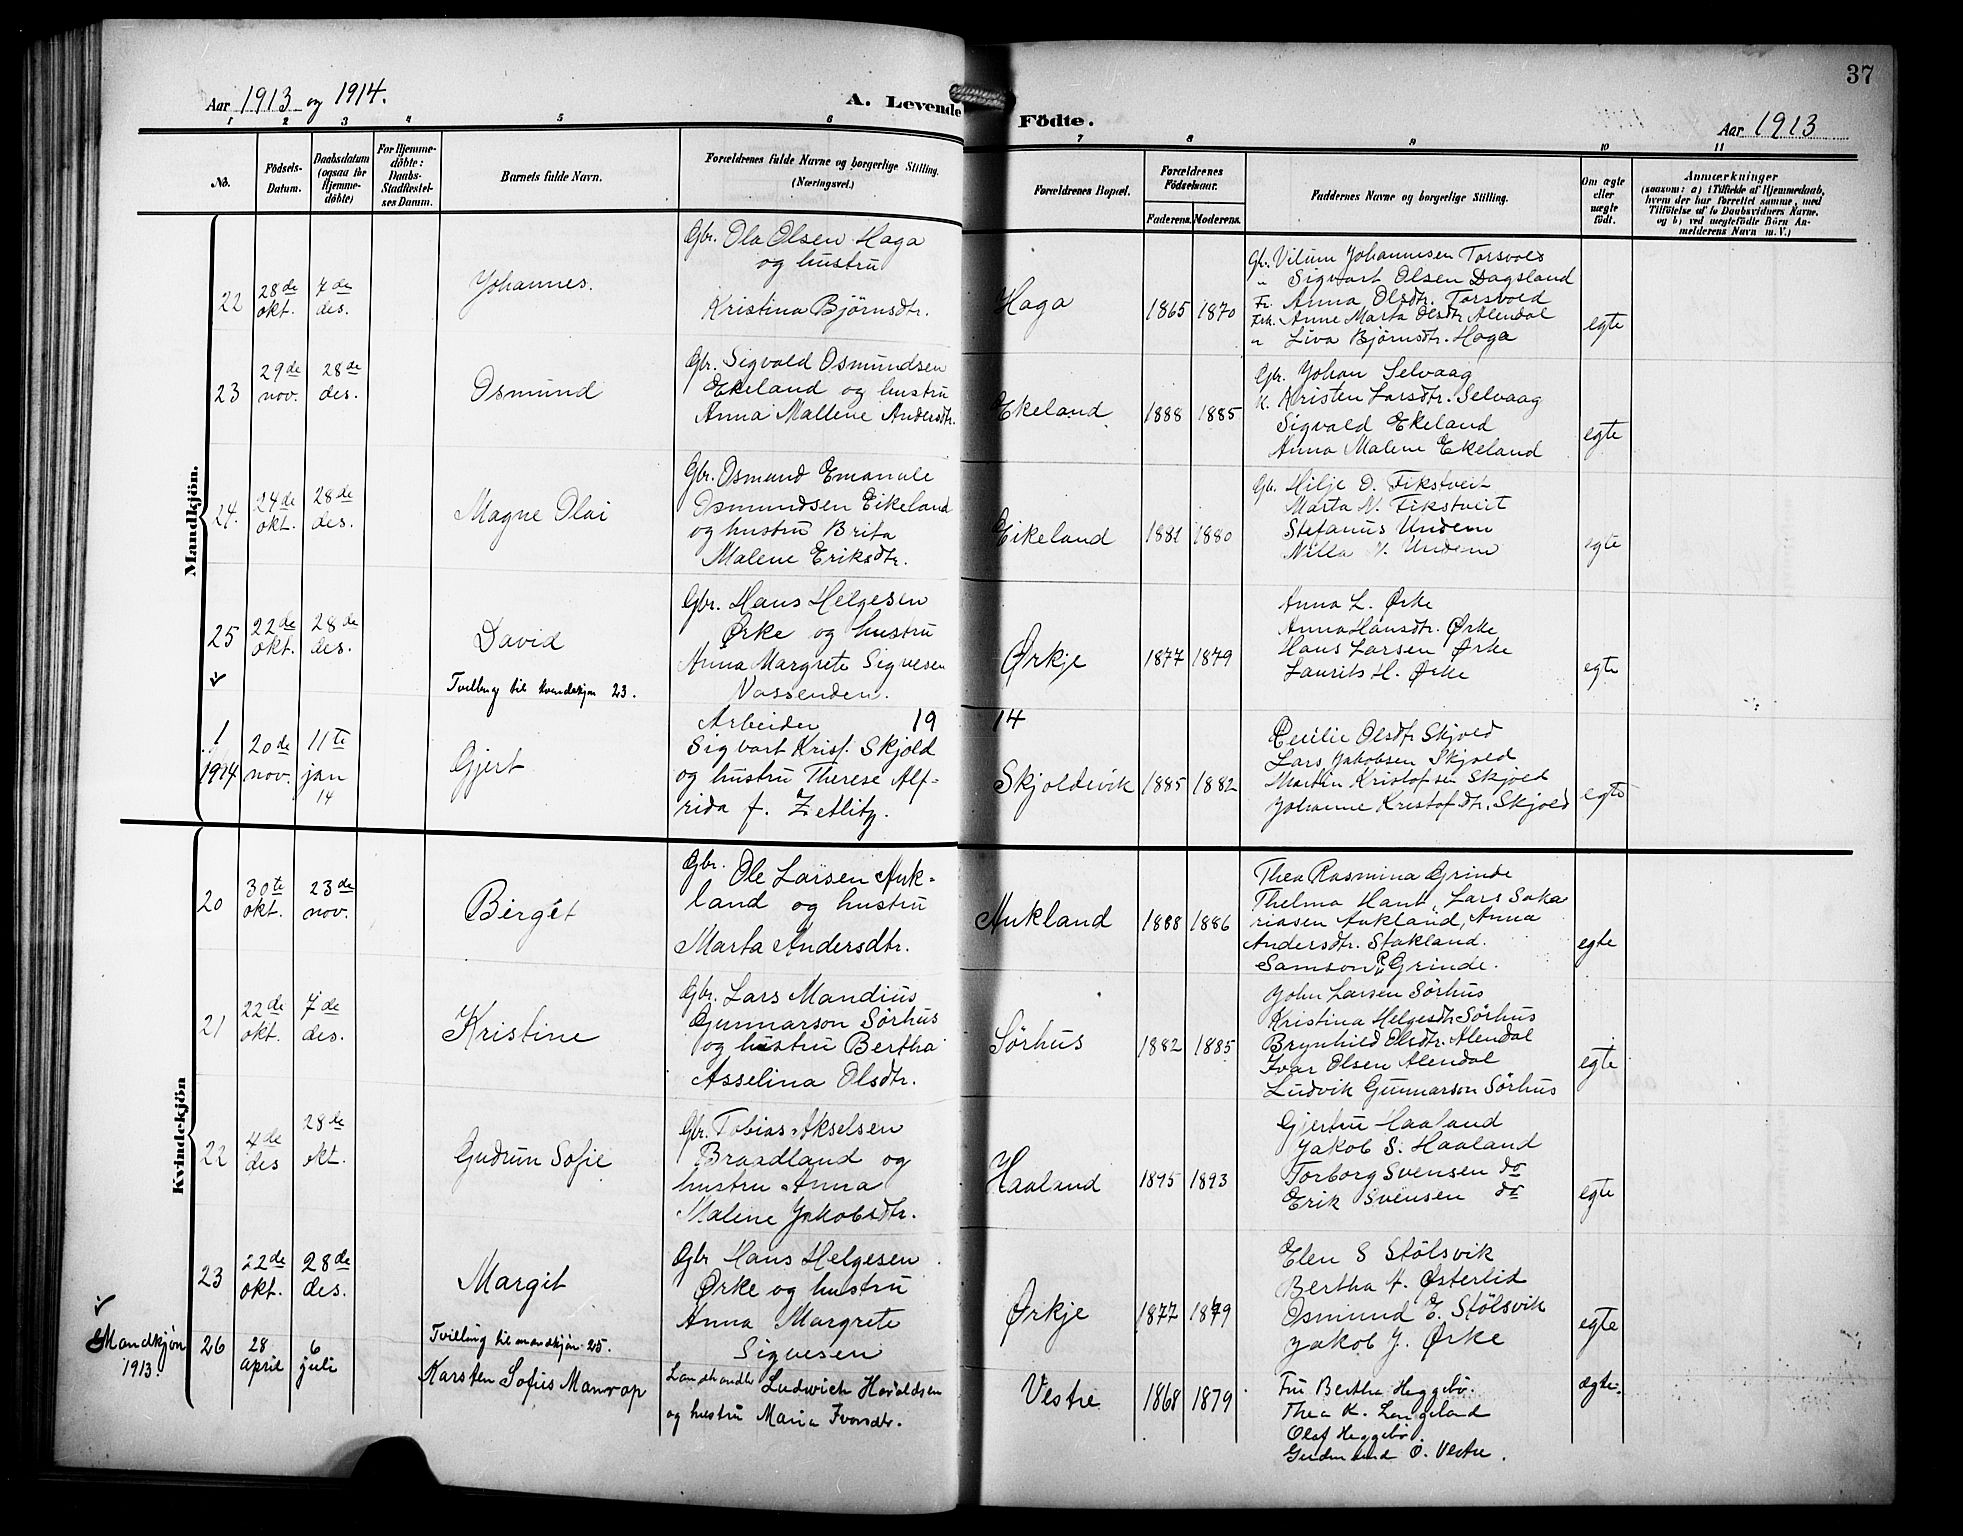 37
Aar 1913 og 1914.
A. Levende Födte.
Aar 1913
1 2 3 4 5 6 7 8 9 10 11
No.
Födsels-Datum.
Daabsdatum (ogsaa for Hjemme-döbte)
For Hjemme-döbte: Daabs-Stadfæstel-ses Datum.
Barnets fulde Navn.
Forældrenes fulde Navne og borgerlige Stilling. (Næringsvei.)
Forældrenes Bopæl.
Forældrenes Födselsaar.
Faderens. Moderens.
Faddernes Navne og borgerlige Stilling.
Om ægte eller uægte født.
Anmærkninger
(saasom: a) i Tilfælde af Hjemmedaab,
hvem der har forrettet samme, med
Tilföielse af to Daabsvidners Navne,
og b) ved uægtefödte Börn An-
melderens Navn m. V.)
Mandkjön.
22
28de okt.
7de des.
Johannes.
Gbr. Ola Olsen Haga
og hustru
Kristina Bjørnsdtr.
Haga
1865 1870
Gbr. Vilum Johannesen Torsvold
" Sigvart Olsen Dagsland
Fr. Anna Olsdtr. Torsvold
Frk. Anne Marta Olsdtr Alendal
" Liva Bjørnsdtr. Haga
egte
23
29de nov.
28de des.
Osmund
Gbr. Sigvald Osmundsen
Ekeland og hustru
Anna Mallene Andersdtr.
Ekeland
1888 1885
Gbr. Johan Selvaag
K. Kristen Larsdtr. Selvaag
Sigvald Ekeland
Anna Malene Ekeland
egte
24.
24de okt.
28de des.
Magne Olai
Gbr. Osmund Emanale
Osmundsen Eikeland
og hustru Brita
Malene Eriksdtr.
Eikeland
1881 1880
Gbr. Hilje O. Fikstveit
Marta N. Fikstveit
Stefanus Undem
Nilla N. Undem
egte
25
22de okt.
28de des.
David
Tvilling til kvindekjøn 23.
Gbr. Hans Helgesen
Ørke og hustru
Anna Margrete Sigvesen
Vassenden.
Ørkje
1877 1879
Anna L. Ørke
Anna Hansdtr. Ørke
Hans Larsen Ørke
Laurits H. Ørke
egte
1914
1
1914
20de nov.
11te jan 14
Gjert
Arbeider
Sigvart Krist. Skjold
og hustru Therese Alf-
rida f. Zetlitz.
Skjoldevik
1885 1882
Cecilie Olsdtr Skjold
Lars Jakobsen Skjold
Martin Kristofsen Skjold
Johanne Kristofdtr. Skjold
egte
Kvindekjön
20
30te okt.
23de nov.
Birgit
Gbr. Ole Larsen Auk-
land og hustru
Marta Andersdtr.
Aukland
1888 1886
Thea Rasmina Grinde
Thelma Hant, Lars Saka
riasen Aukland, Anna
Andersdtr. Stakland.
Samson Grinde.
egte
21
22de okt.
7de des.
Kristine
Gbr. Lars Mandius
Gunnarson Sørhus
og hustru Bertha
Asselina Olsdtr.
Sørhus
1882 1885
John Larsen Sørhus
Kristina Helgesdtr Sørhus
Brynhild Olsdtr. Alendal
Ivar Olsen Alendal
Ludvik Gunnarson Sørhus
egte
22
4de des
28de okt.
Gudrun Sofie
Gbr. Tobias Akselsen
Braadland og
hustru Anna
Malene Jakobsdtr.
Haaland
1895 1893
Gjertru Haaland
Jakob S. Haaland
Torborg Svensen do
Erik Svensen do
egte
23
22de okt.
28de des.
Margit
Tvilling til mandkjøn 25.
Gbr Hans Helgesen
Ørke og hustru
Anna Margrete
Sigvesen
Ørkje
1877 1879
Elen S Stølsvik
Bertha A. Østerlid
Osmund E. Stølsvik
Jakob J. Ørke
egte
Mandkjøn 1913.
26
28 april
6 juli
Karsten Sofus Manrop
Landhandler Ludwich Haraldsen
og hustru Maria Ivarsdtr.
Vestre
1868 1879
Fru Bertha Heggebø.
Thea K. Langeland
Olaf Heggebø
Gudmund O. Vestre.
ægte.